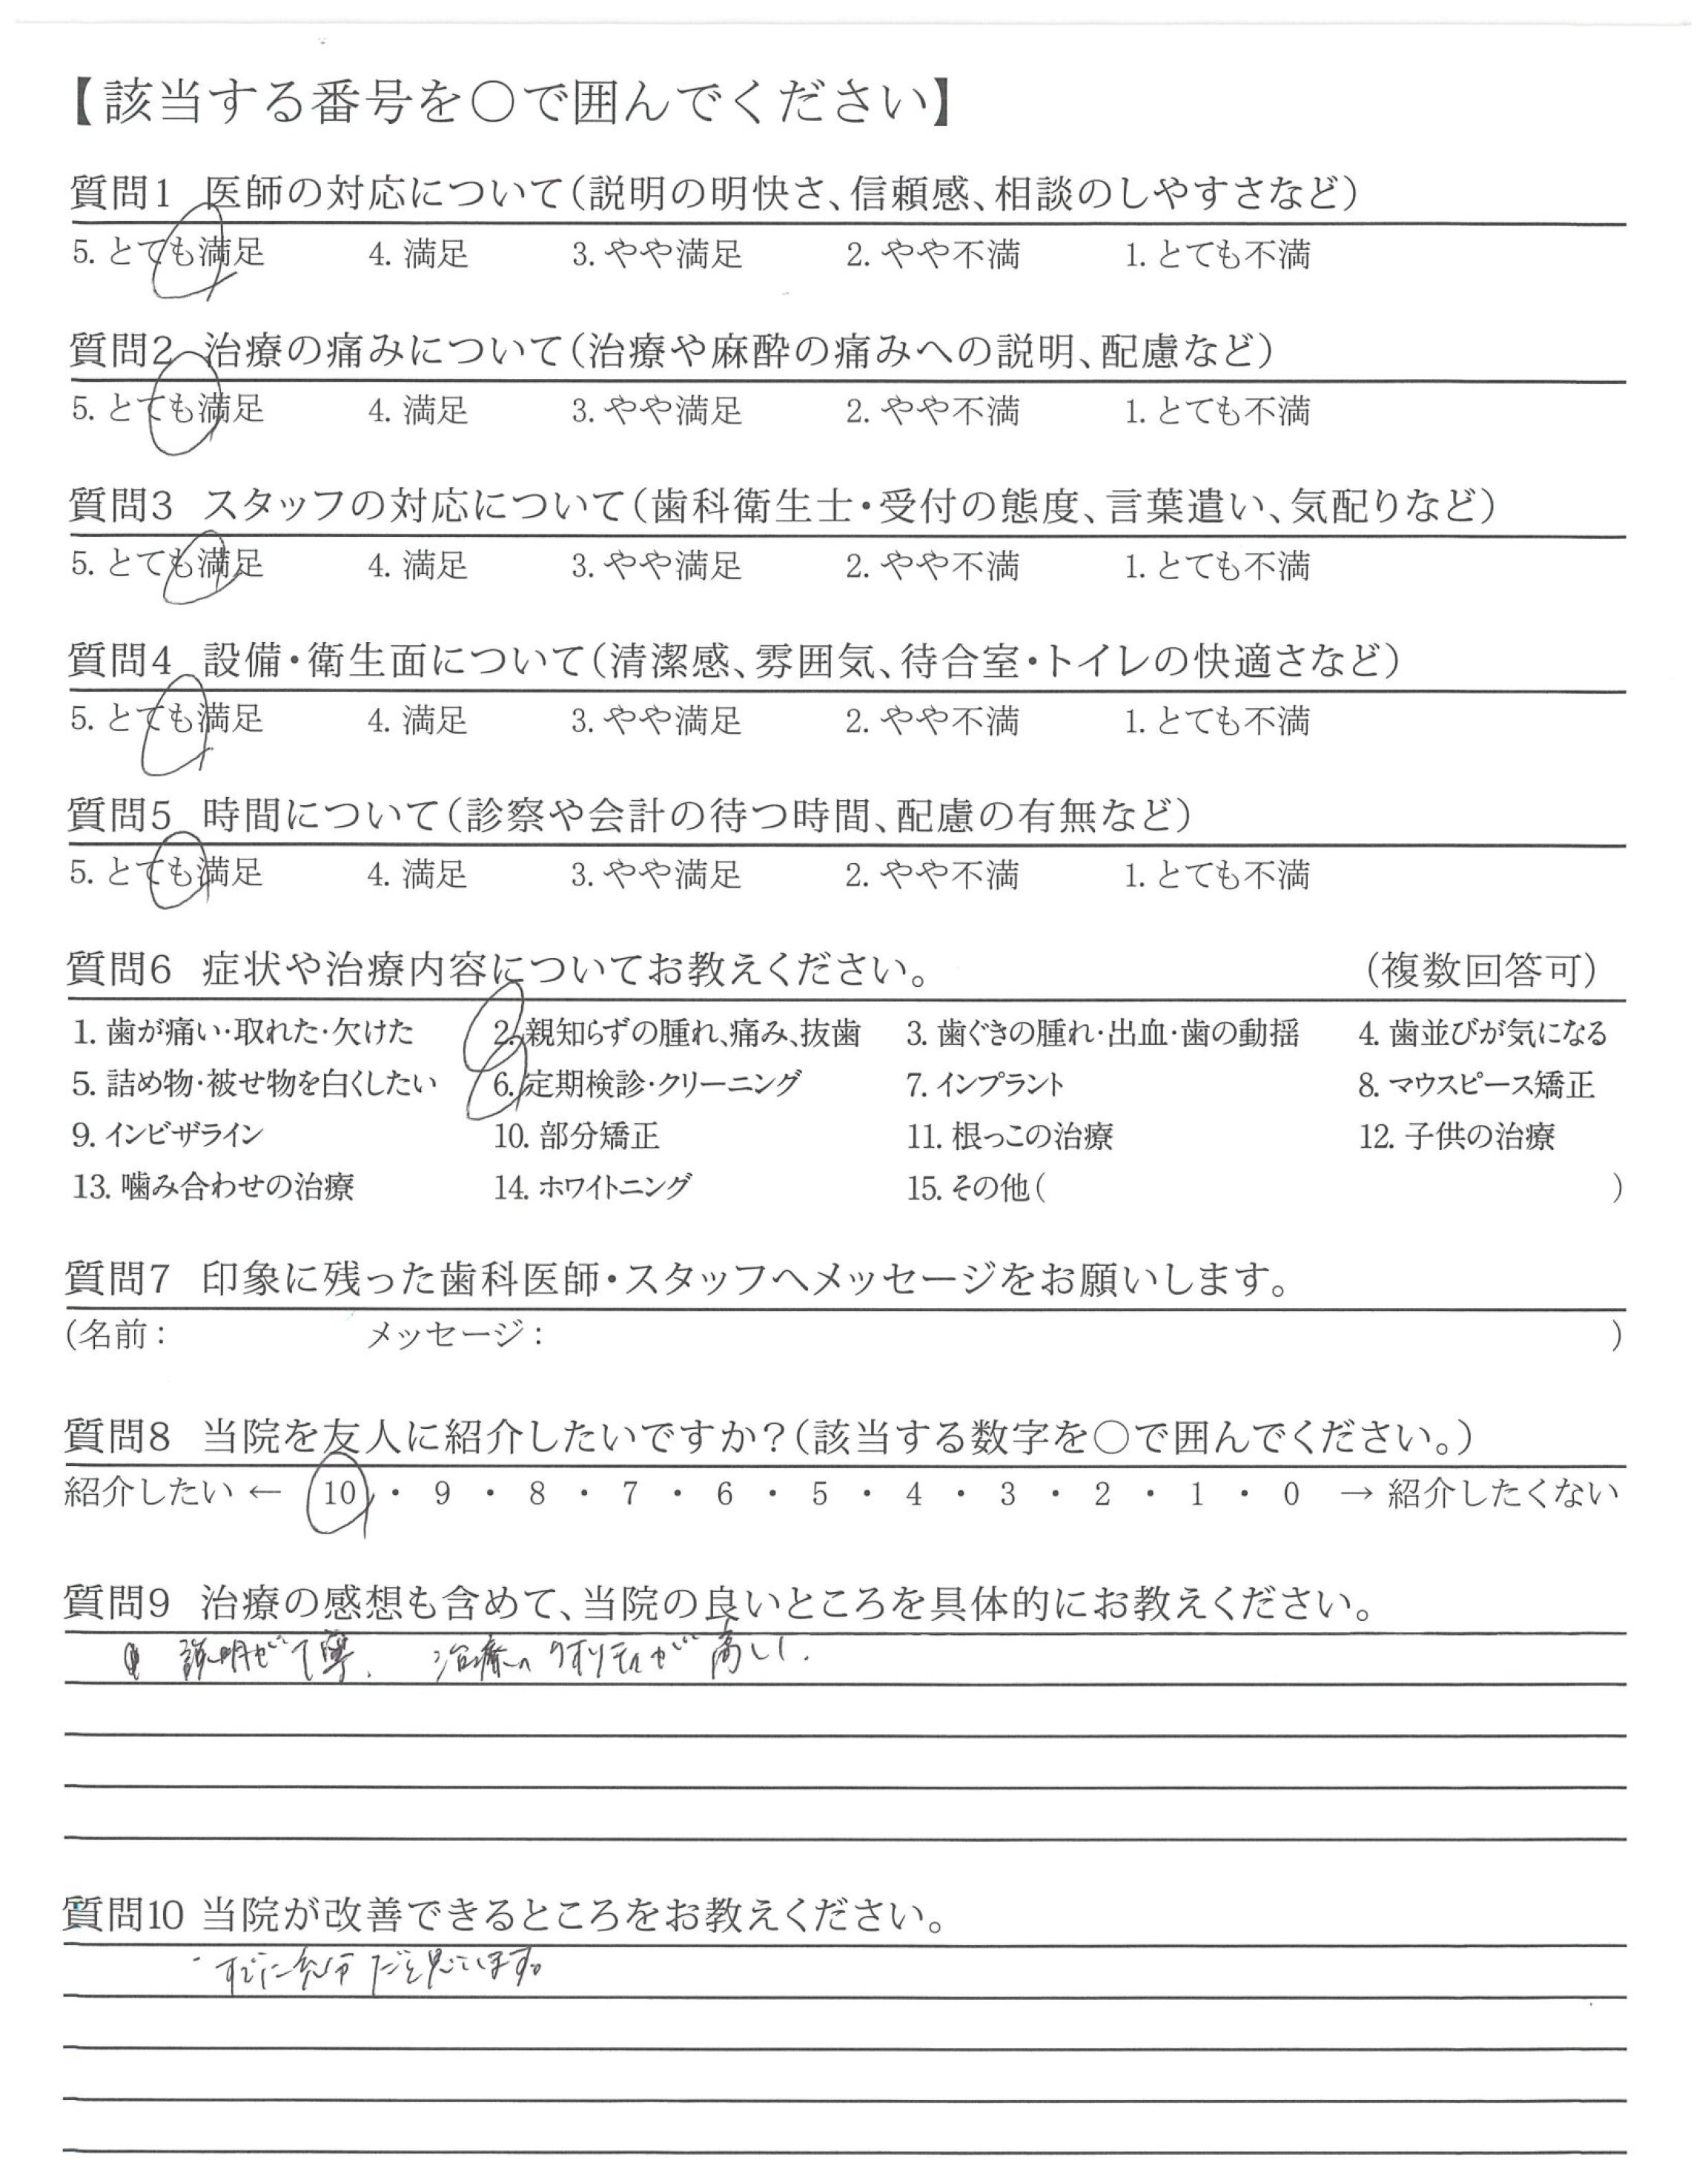 【該当する番号を〇で囲んでください】
質問1 医師の対応について(説明の明快さ、信頼感、相談のしやすさなど)
5. とても満足 4. 満足 3. やや満足 2. やや不満 1. とても不満
質問2 治療の痛みについて(治療や麻酔の痛みへの説明、配慮など)
5. とても満足 4. 満足 3. やや満足 2. やや不満 1. とても不満
質問3 スタッフの対応について(歯科衛生士・受付の態度、言葉遣い、気配りなど)
5. とても満足 4. 満足 3. やや満足 2. やや不満 1. とても不満
質問4 設備・衛生面について(清潔感、雰囲気、待合室・トイレの快適さなど)
5. とても満足 4. 満足 3. やや満足 2. やや不満 1. とても不満
質問5 時間について(診察や会計の待つ時間、配慮の有無など)
5. とても満足 4. 満足 3. やや満足 2. やや不満 1. とても不満
質問6 症状や治療内容についてお教えください。 (複数回答可)
1. 歯が痛い・取れた・欠けた 2. 親知らずの腫れ、痛み、抜歯 3. 歯ぐきの腫れ・出血・歯の動揺 4. 歯並びが気になる
5. 詰め物・被せ物を白くしたい 6. 定期検診・クリーニング 7. インプラント 8. マウスピース矯正
9. インビザライン 10. 部分矯正 11. 根っこの治療 12. 子供の治療
13. 噛み合わせの治療 14. ホワイトニング 15. その他( )
質問7 印象に残った歯科医師・スタッフへメッセージをお願いします。
(名前: メッセージ: )
質問8 当院を友人に紹介したいですか?(該当する数字を〇で囲んでください。)
紹介したい ← 10 ・ 9 ・ 8 ・ 7 ・ 6 ・ 5 ・ 4 ・ 3 ・ 2 ・ 1 ・ 0 → 紹介したくない
質問9 治療の感想も含めて、当院の良いところを具体的にお教えください。
説明が丁寧. 治療のクオリティが高い.
質問10 当院が改善できるところをお教えください。
すでに充分だと思います。